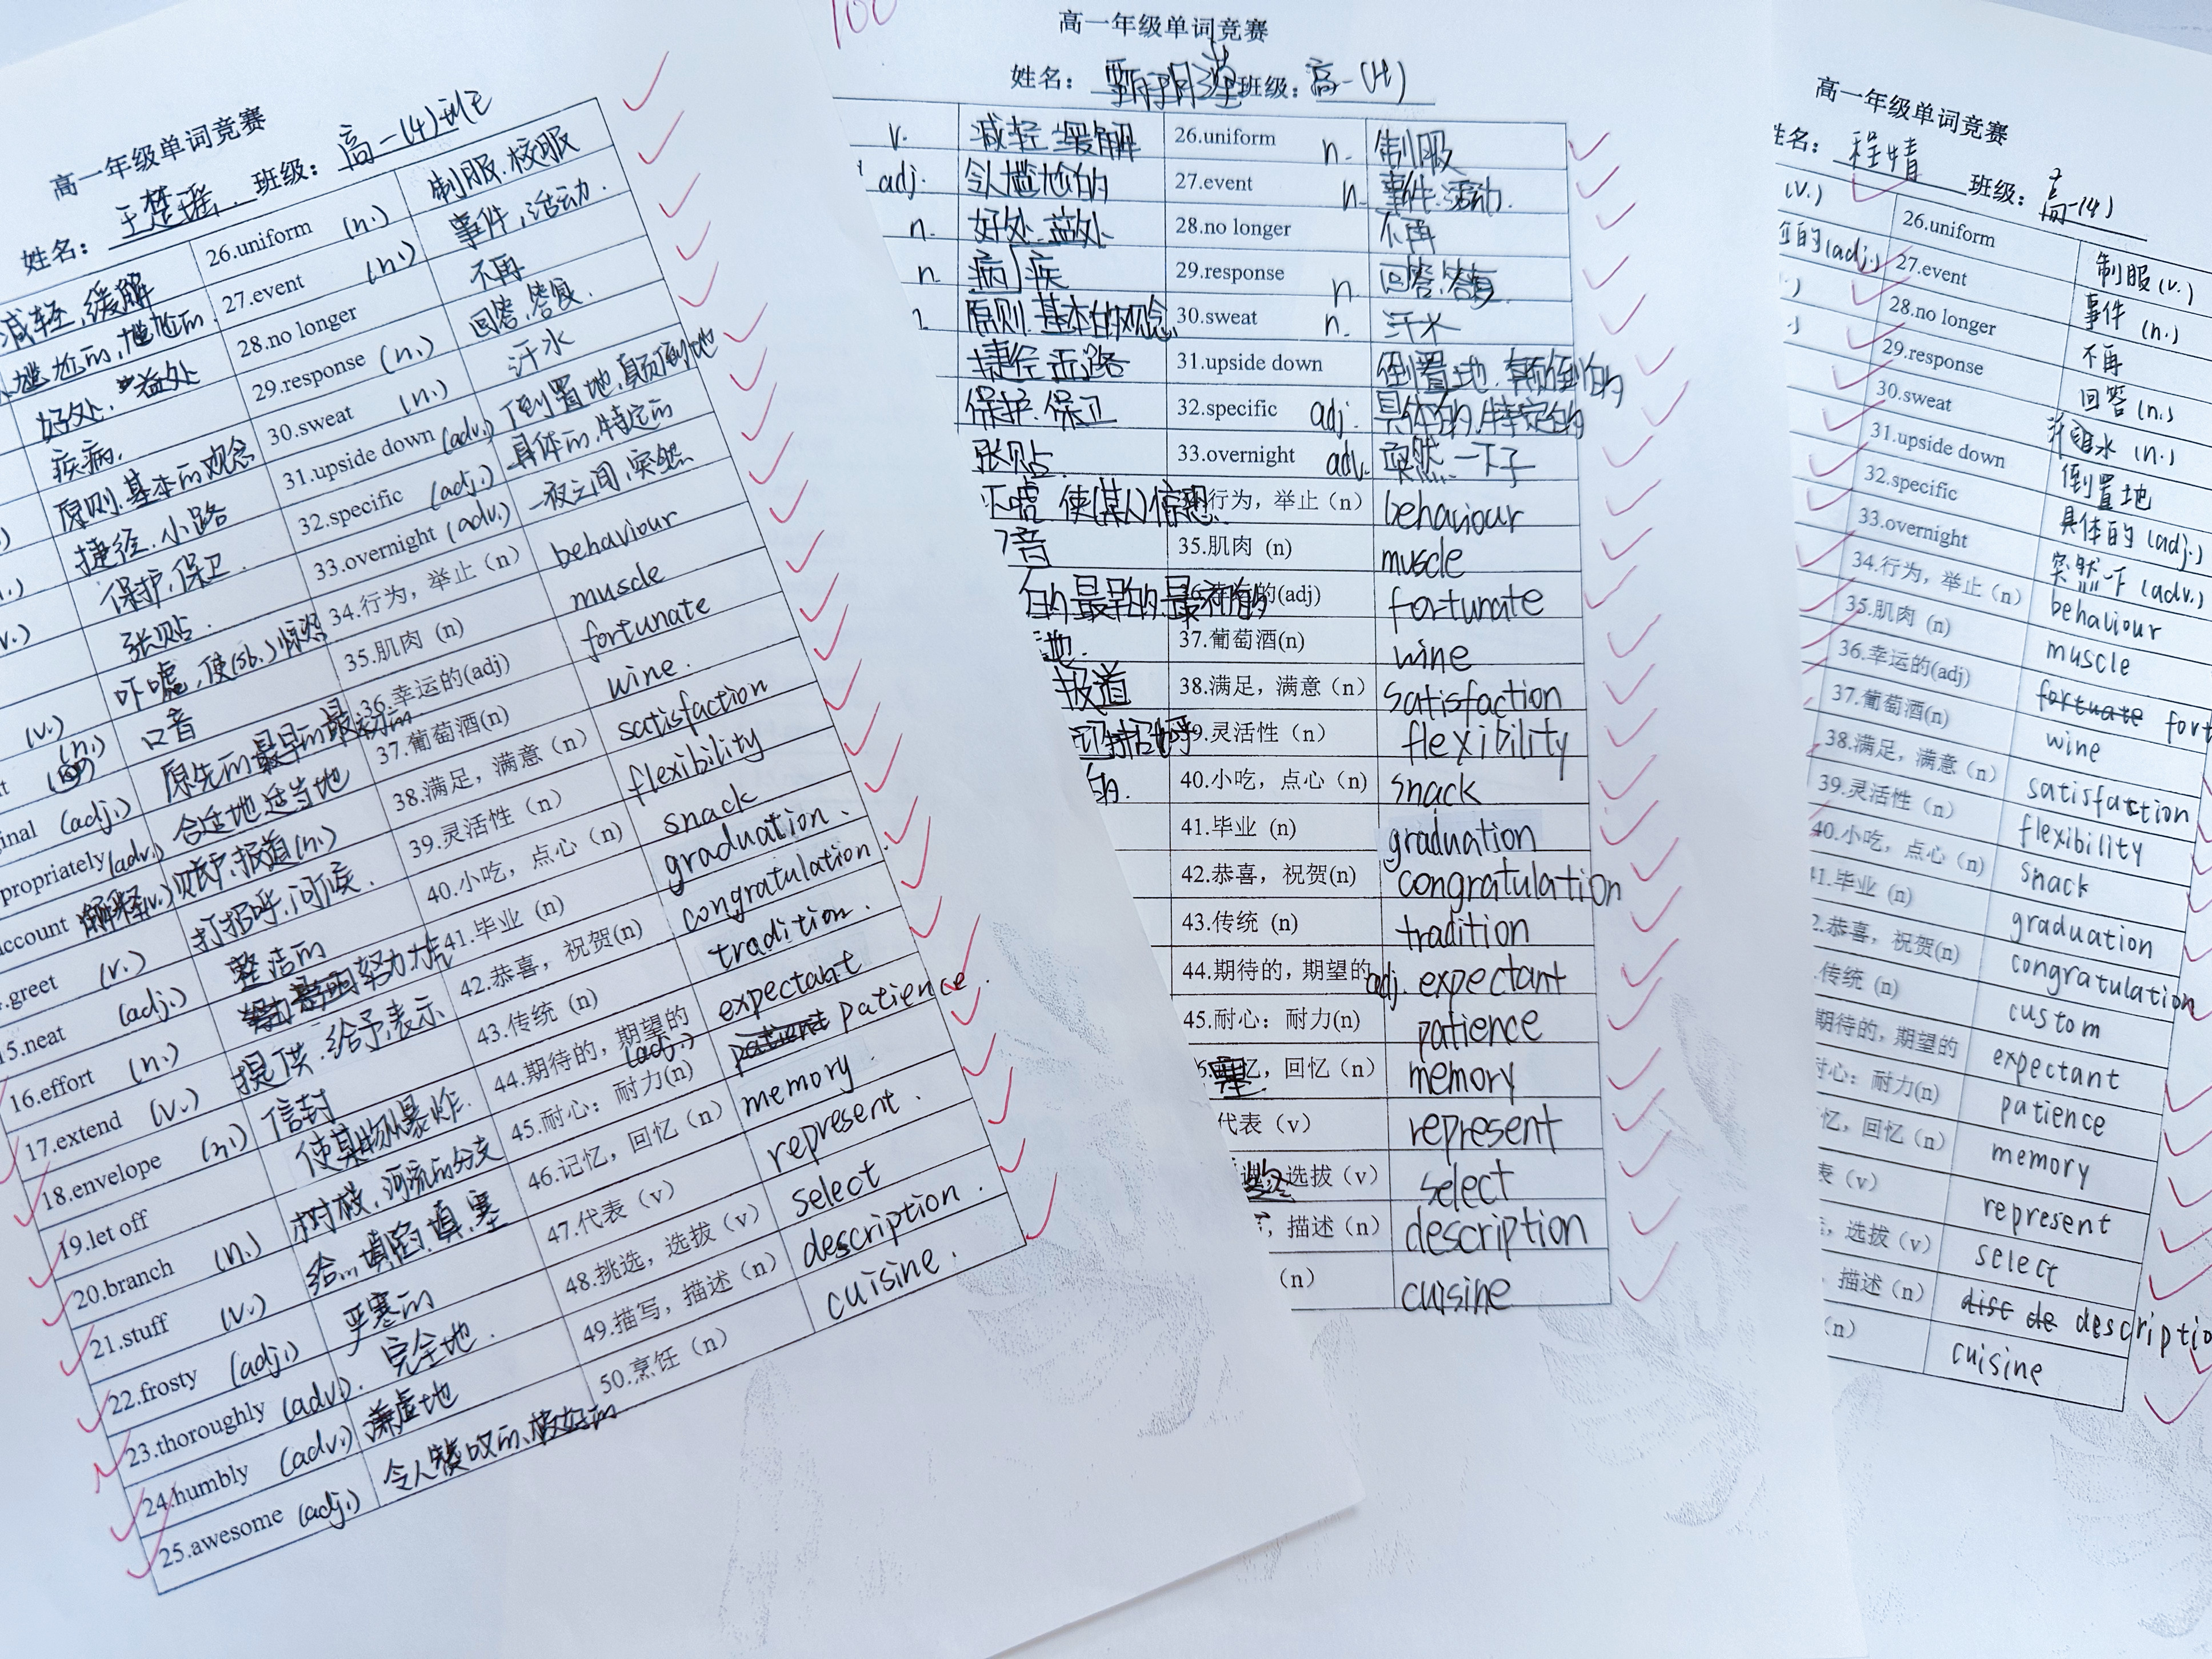 高一年级单词竞赛
姓名： 王楚瑶 班级： 高一(4)班
减轻,缓解 26.uniform (n.) 制服.校服
尴尬的,尴尬的 27.event (n.) 事件,活动.
好处.益处 28.no longer 不再
疾病. 29.response (n.) 回答,答复.
原则.基本的观念 30.sweat (n.) 汗水
捷径.小路 31.upside down (adv.) 倒置地,颠倒地
保护.保卫. 32.specific (adj.) 具体的,特定的
张贴. 33.overnight (adv.) 一夜之间,突然
吓唬,使(sb.)惊恐 34.行为，举止（n） behaviour
口音 35.肌肉 (n) muscle
原先的最早的最初的 36.幸运的(adj) fortunate
propriately (adv.) 合适地.适当地 37.葡萄酒(n) wine.
account 解释(v.) 账户.报道(n.) 38.满足，满意（n） satisfaction
.greet (v.) 打招呼.问候. 39.灵活性（n） flexibility
15.neat (adj.) 整洁的 40.小吃，点心（n） snack
16.effort (n.) 努力. 41.毕业（n） graduation.
17.extend (v.) 提供.给予.表示 42.恭喜，祝贺(n) congratulation.
18.envelope (n.) 信封 43.传统（n） tradition.
19.let off 使某物爆炸. 44.期待的，期望的 (adj.) expectant
20.branch (n.) 树枝,河流的分支 45.耐心：耐力(n) patient patience.
21.stuff (v.) 给...填馅.填.塞 46.记忆，回忆（n） memory.
22.frosty (adj.) 严寒的 47.代表（v） represent.
23.thoroughly (adv.) 完全地. 48.挑选，选拔（v） select
24.humbly (adv.) 谦虚地 49.描写，描述（n） description.
25.awesome (adj.) 令人赞叹的,极好的 50.烹饪（n） cuisine.
100
高一年级单词竞赛
姓名： 班级： 高一(4)
v. 减轻.缓解 26.uniform n. 制服
adj. 令人尴尬的 27.event n. 事件.活动.
n. 好处.益处 28.no longer 不再
n. 病疾 29.response n. 回答.答复
原则.基本的观念 30.sweat n. 汗水
捷径.小路 31.upside down 倒置地.颠倒的
保护.保卫 32.specific adj. 具体的.特定的
张贴. 33.overnight adv. 突然.一下子
吓唬 使(某人)惊恐 行为，举止（n） behaviour
音 35.肌肉 (n) muscle
的.最早的.最初的 的(adj) fortunate
地. 37.葡萄酒(n) wine
报道 38.满足，满意（n） satisfaction
打招呼 39.灵活性（n） flexibility
的. 40.小吃，点心（n） snack
41.毕业（n） graduation
42.恭喜，祝贺(n) congratulation
43.传统（n） tradition
44.期待的，期望的 adj. expectant
45.耐心：耐力(n) patience
塞. 忆，回忆（n） memory
代表（v） represent
选拔（v） select
，描述（n） description
（n） cuisine
高一年级单词竞赛
姓名： 程婧 班级： 高一(4)
(v.) 26.uniform 制服 (v.)
的(adj.) 27.event 事件 (n.)
28.no longer 不再
29.response 回答 (n.)
30.sweat 汗水 (n.)
31.upside down 倒置地
32.specific 具体的 (adj.)
33.overnight 突然一下 (adv.)
34.行为，举止（n） behaviour
35.肌肉 (n) muscle
36.幸运的(adj) fortuate fort
37.葡萄酒(n) wine
38.满足，满意（n） satisfaction
39.灵活性（n） flexibility
40.小吃，点心（n） snack
41.毕业（n） graduation
2.恭喜，祝贺(n) congratulation
.传统（n） custom
期待的，期望的 expectant
耐心：耐力(n) patience
忆，回忆（n） memory
表（v） represent
，选拔（v） select
，描述（n） disc de descriptio
（n） cuisine